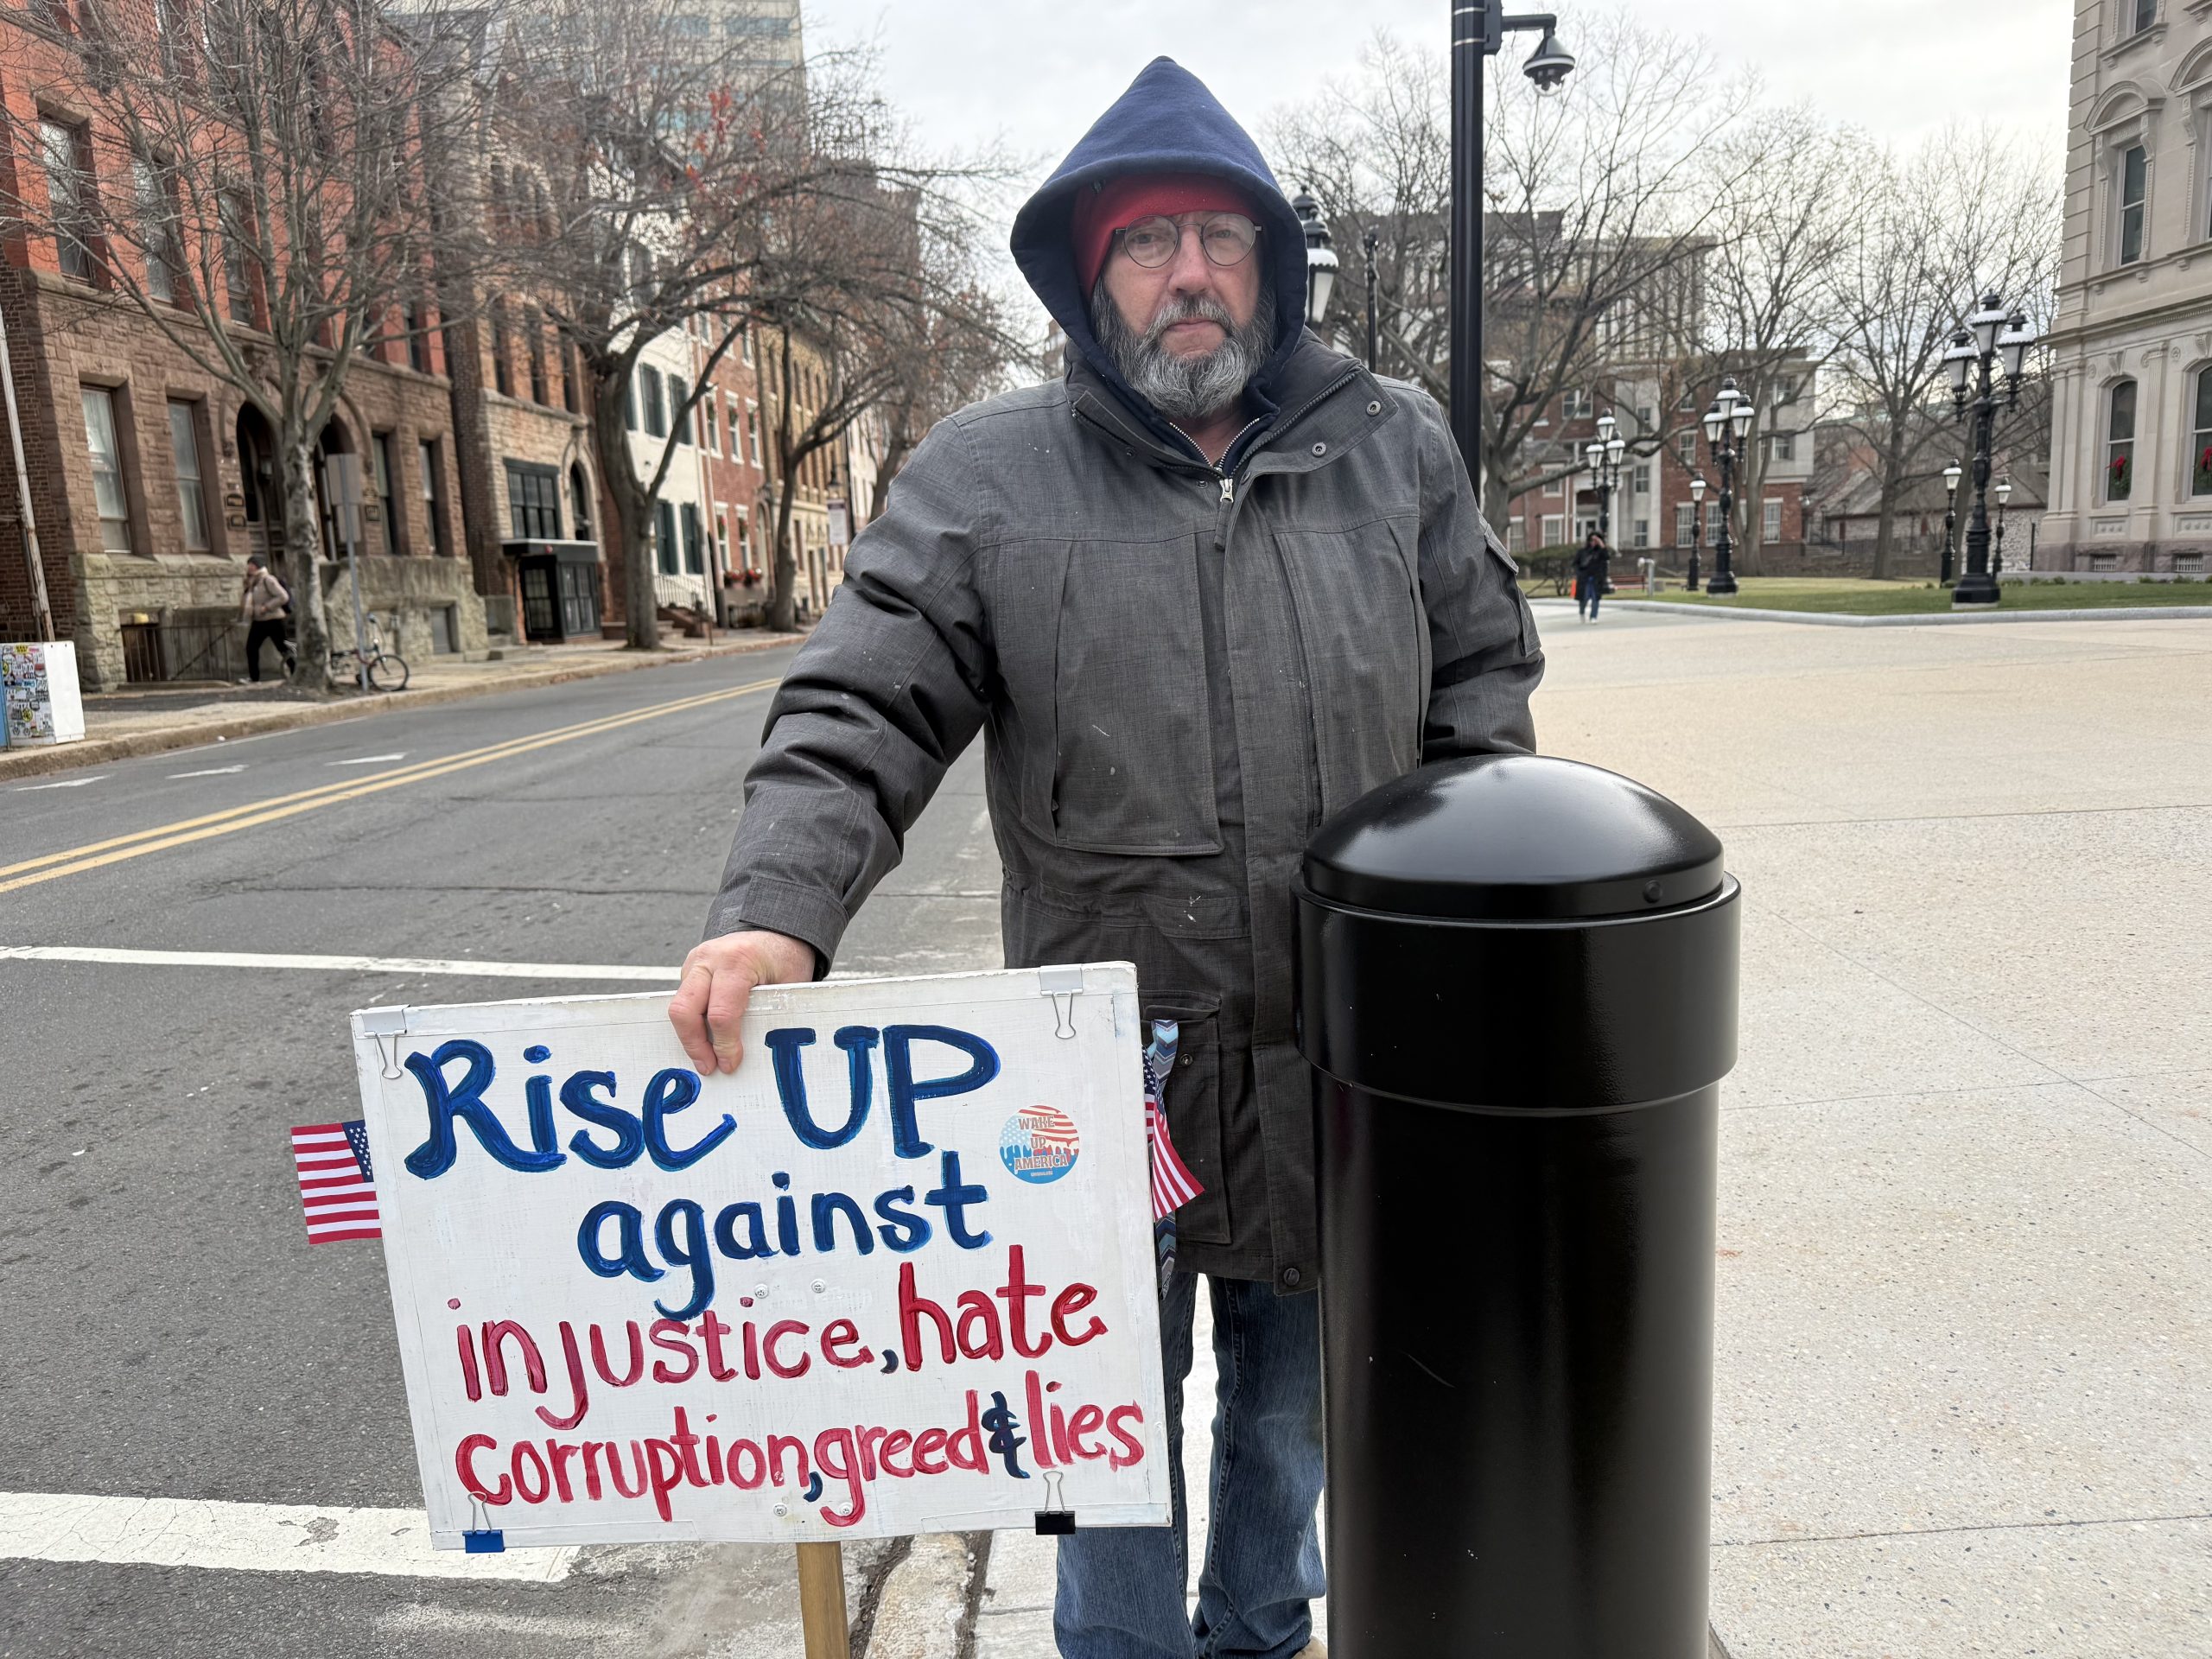 Rise UP
against
injustice, hate
corruption, greed & lies
WAKE
UP
AMERICA